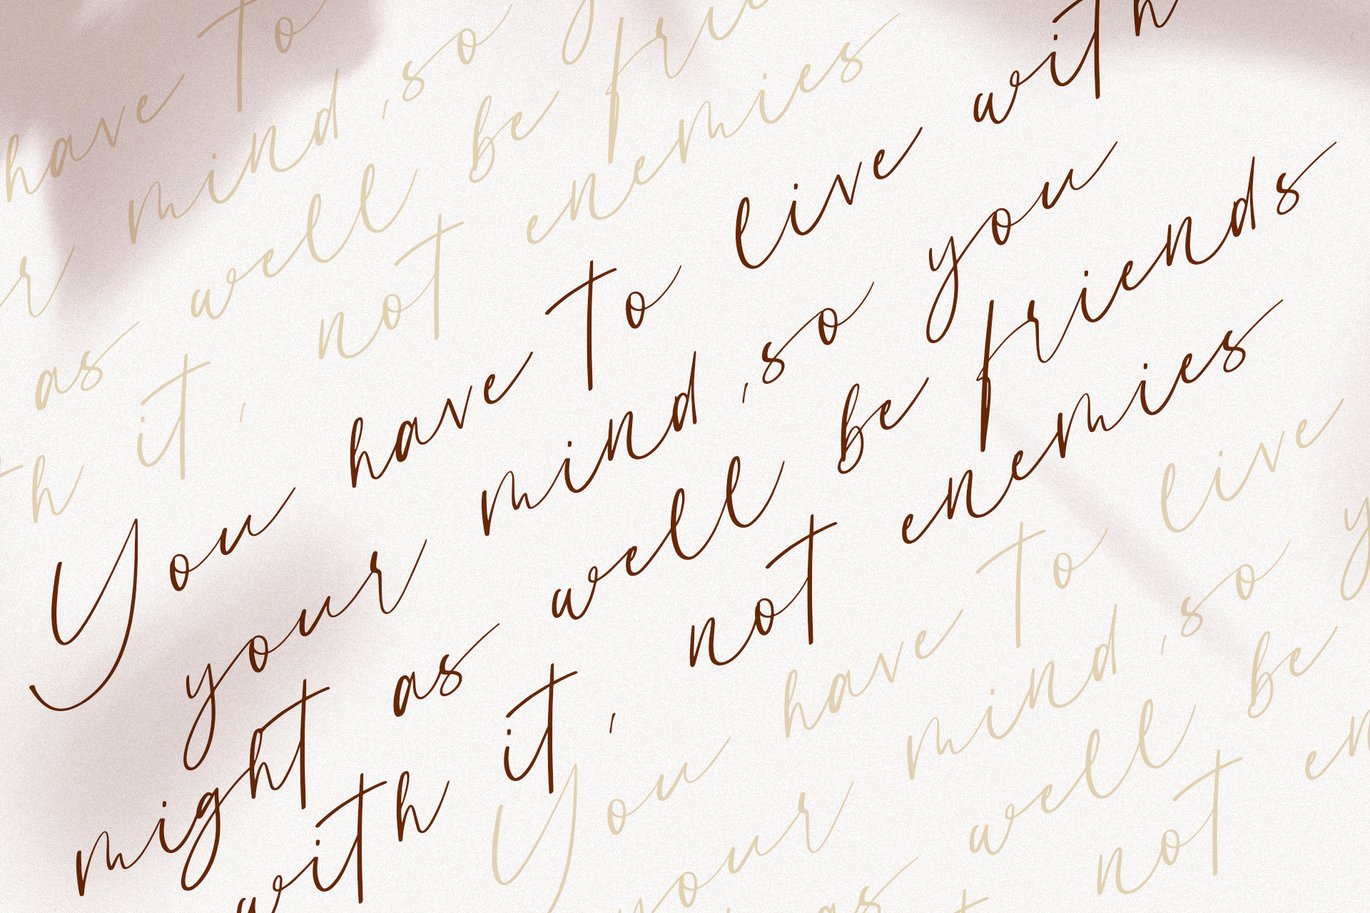 have to
r mind, so y
as well be frie
th it, not enemies
You have to live with
your mind, so you
might as well be friends
with it, not enemies
You have to live
your mind, so y
as well be
not en